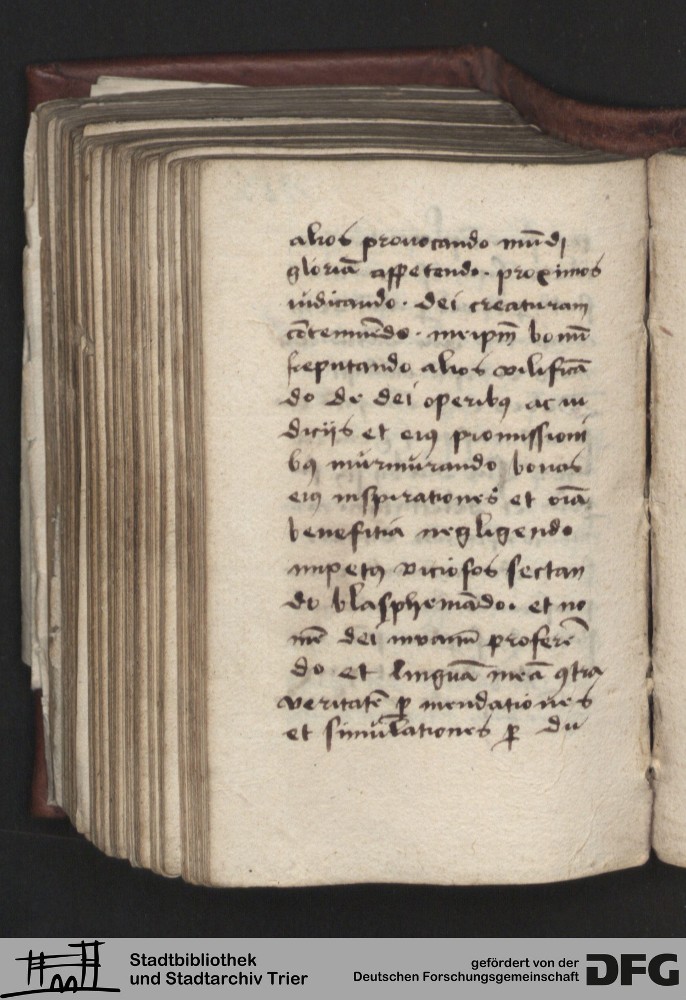 alios prouocando mūdi
gloriā appetendo · proximos
iudicando · dei creaturam
cōtemnēdo · meipm̄ bonū
reputando alios vilificā
do de dei operibꝫ ac iu
dicijs et eiꝰ promissioni
bꝫ murmurando bonas
eiꝰ inspirationes et oīa
benefitia negligendo
impetꝰ viciosos sectan
do blasphemādo · et no
mē dei inuanū proferē
do et linguā meā ꝯtra
veritatē ꝑ mendationes
et simulationes ꝑ du
Stadtbibliothek
und Stadtarchiv Trier
gefördert von der
Deutschen Forschungsgemeinschaft
DFG